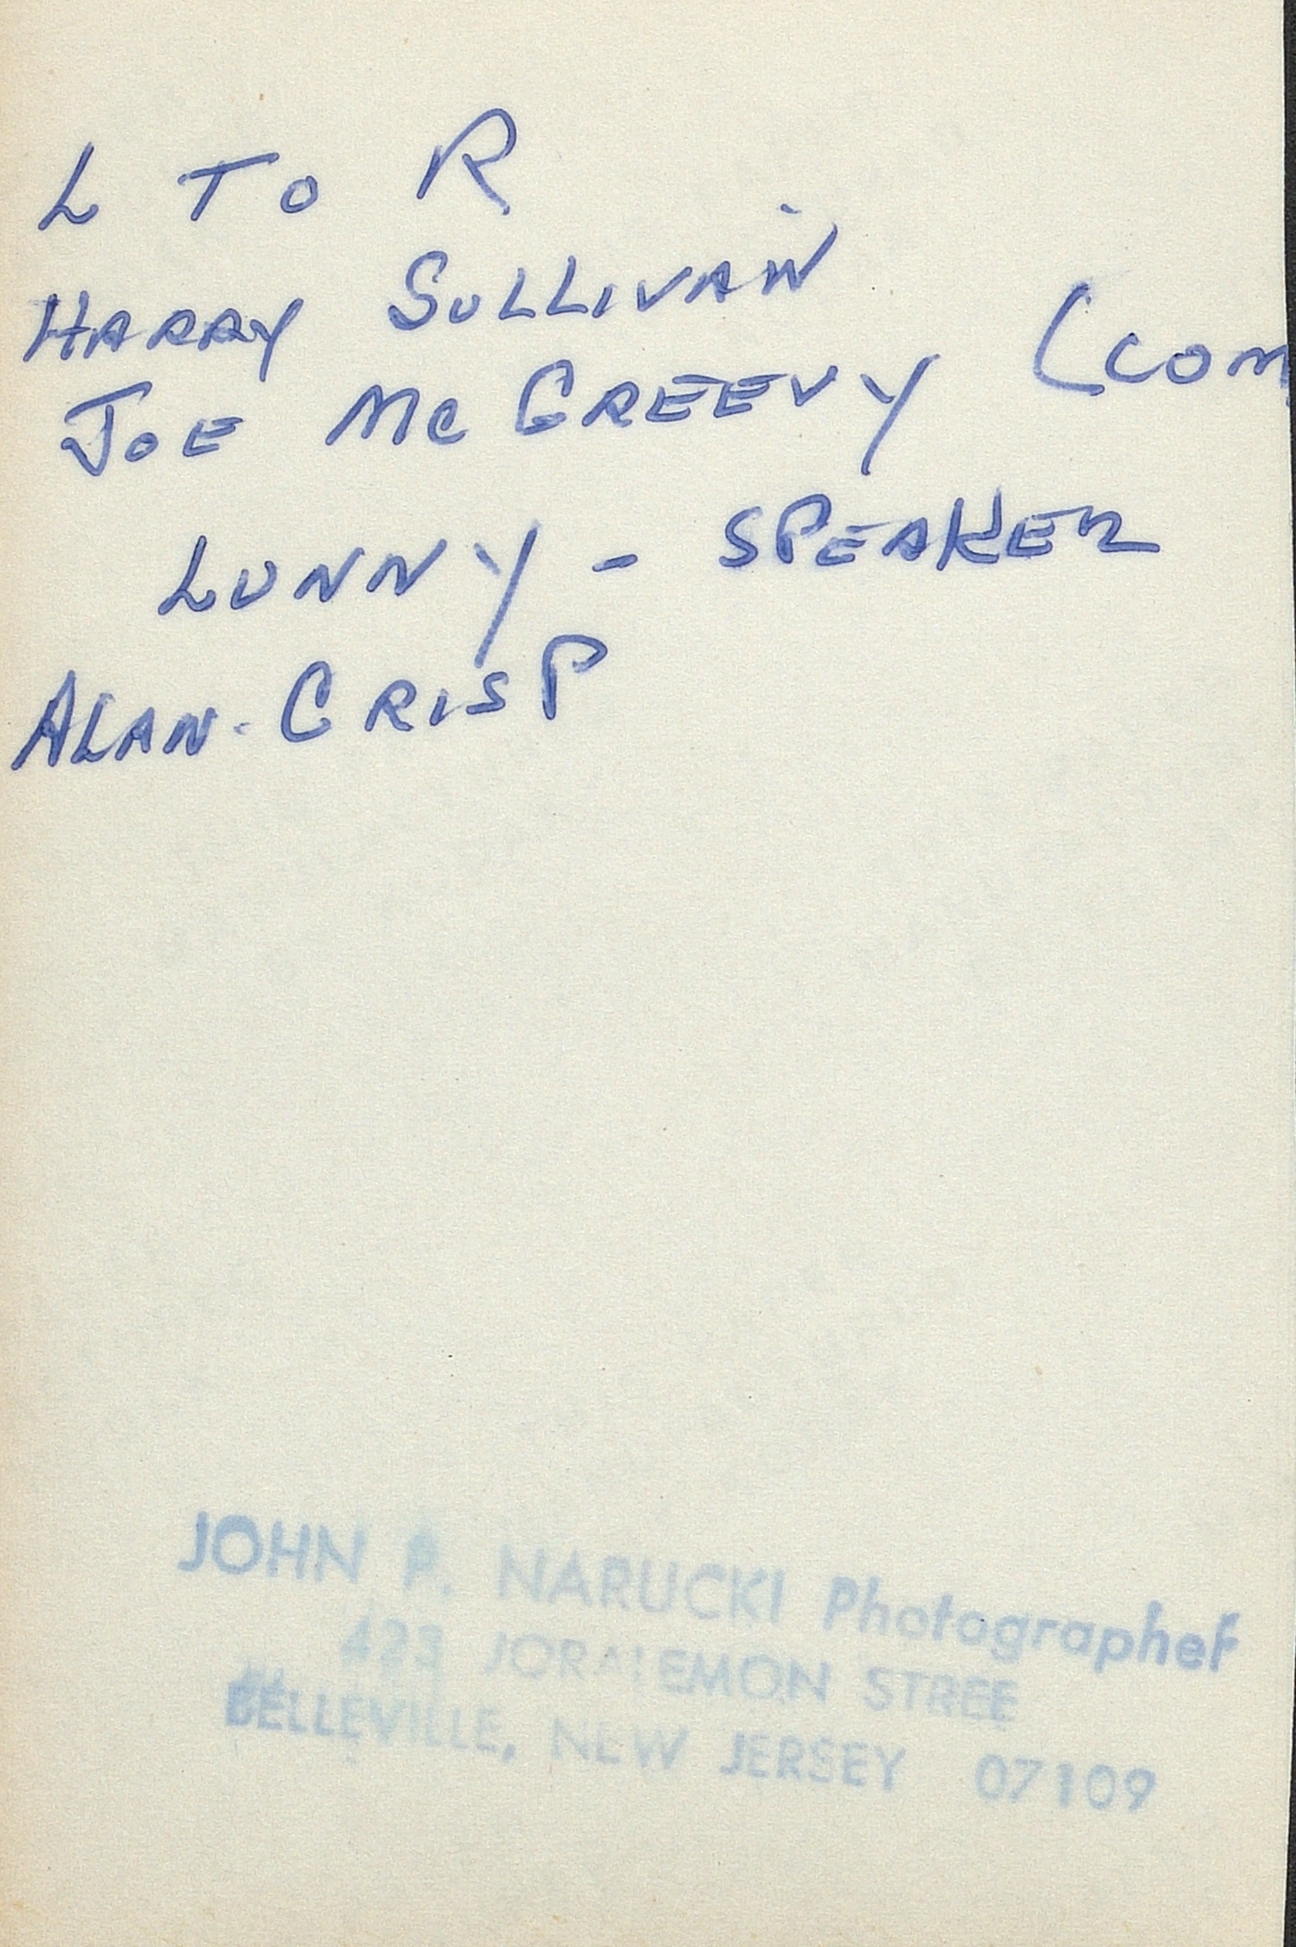 L TO R
HARRY SULLIVAN
JOE McGREEVY (COM
LUNNY - SPEAKER
ALAN. CRISP
JOHN P. NARUCKI Photographer
423 JORALEMON STREE
BELLEVILLE, NEW JERSEY 07109